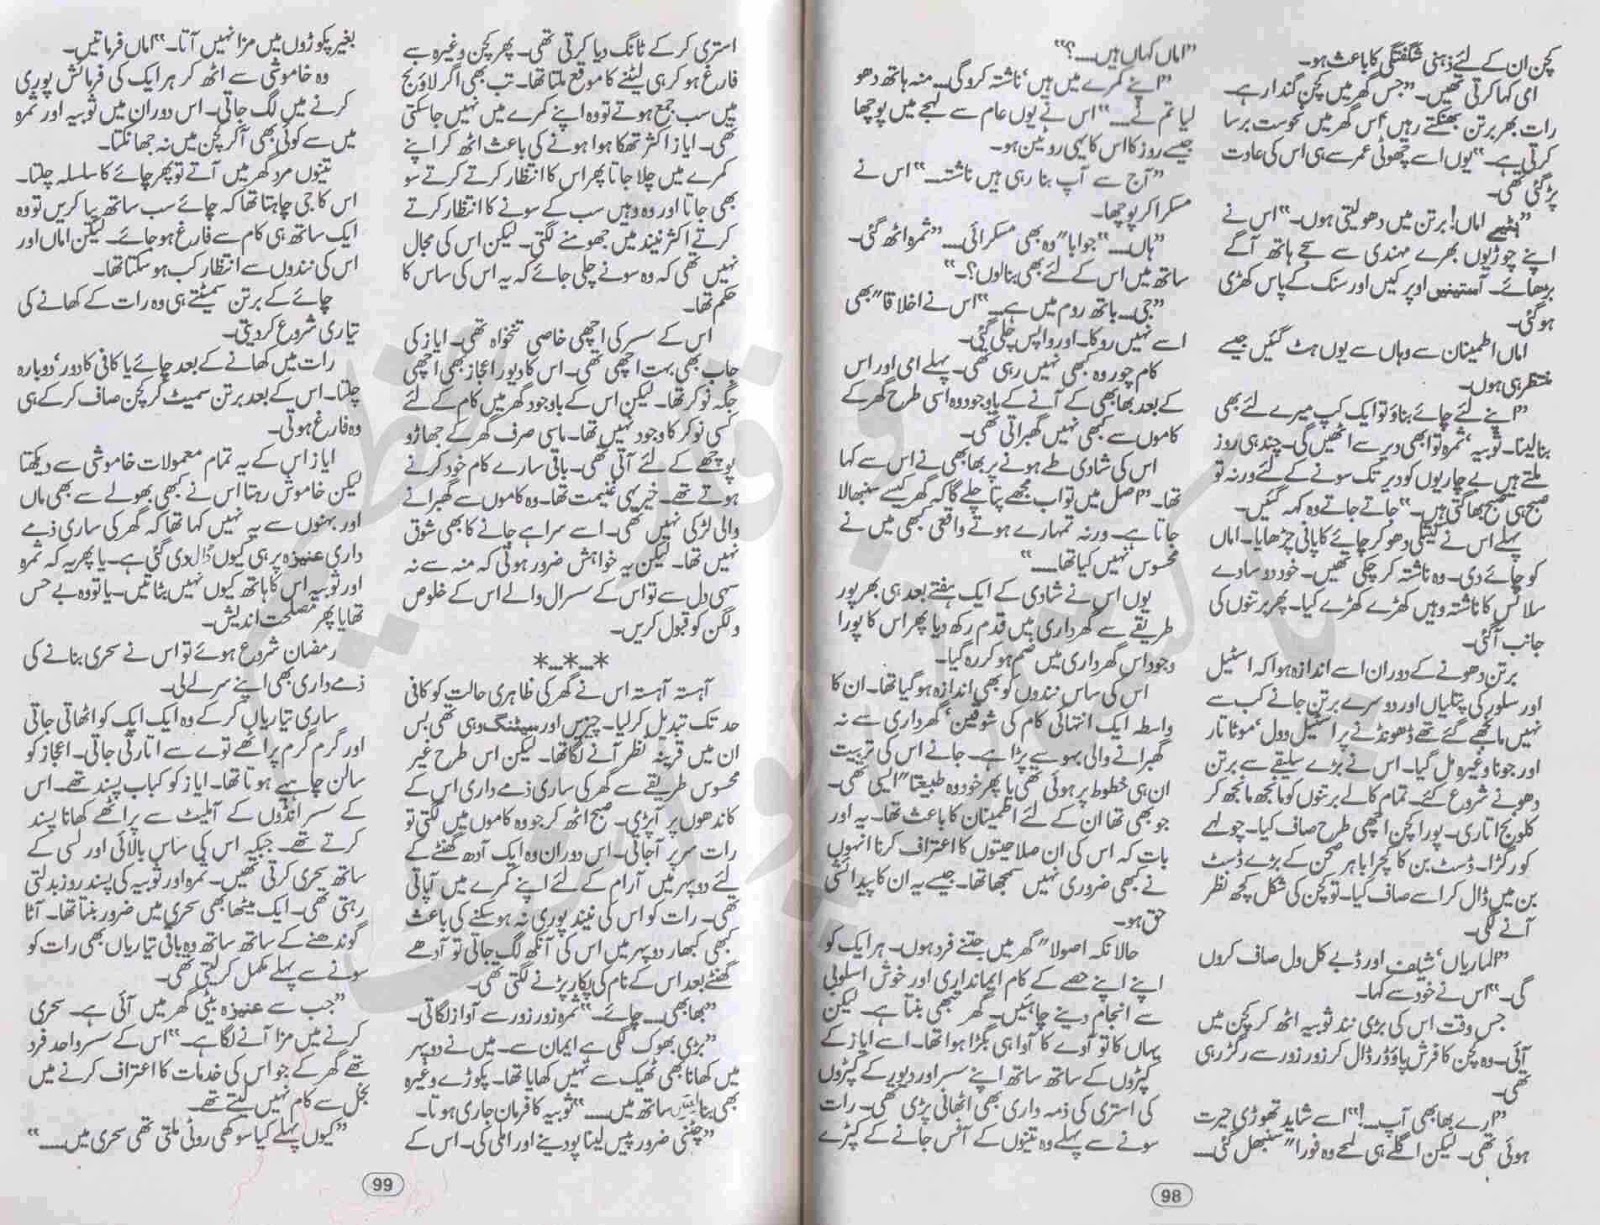 کچن ان کے لئے ذہنی شگفتگی کا باعث ہو۔
امی کہا کرتی تھیں۔ ”جس گھر میں کچن گندا رہے۔
رات بھر برتن بھنکتے رہیں‘ اس گھر میں نحوست برسا
کرتی ہے۔“ یوں اسے چھوٹی عمر سے ہی اس کی عادت
پڑ گئی تھی۔
”ہٹیے اماں! برتن میں دھو لیتی ہوں۔“ اس نے
اپنے چوڑیوں بھرے مہندی سے سجے ہاتھ آگے
بڑھائے۔ آستینیں اوپر کیں اور سنک کے پاس کھڑی
ہو گئی۔
اماں اطمینان سے وہاں سے یوں ہٹ گئیں جیسے
منتظر ہی ہوں۔
”اپنے لئے چائے بناؤ تو ایک کپ میرے لئے بھی
بنا لینا۔ ثوبیہ‘ ثمرہ تو ابھی دیر سے اٹھیں گی۔ چند ہی روز
ملتے ہیں بے چاریوں کو دیر تک سونے کے لئے ورنہ تو
صبح ہی صبح بھاگتی ہیں۔“ جاتے جاتے وہ کہہ گئیں۔
پہلے اس نے کیتلی دھو کر چائے کا پانی چڑھایا۔ اماں
کو چائے دی۔ وہ ناشتہ کر چکی تھیں۔ خود دو سادے
سلائس کا ناشتہ وہیں کھڑے کھڑے کیا۔ پھر برتنوں کی
جانب آ گئی۔
برتن دھونے کے دوران اسے اندازہ ہوا کہ اسٹیل
اور سلور کی پتلیاں اور دوسرے برتن جانے کب سے
نہیں مانجھے گئے تھے ڈھونڈنے پر اسٹیل وول‘ موٹا تار
اور جونا وغیرہ مل گیا۔ اس نے بڑے سلیقے سے برتن
دھونے شروع کئے۔ تمام کالے برتنوں کو مانجھ مانجھ کر
کلونچ اتاری۔ پورا کچن اچھی طرح صاف کیا۔ چولہے
کو رگڑا۔ ڈسٹ بن کا کچرا باہر صحن کے بڑے ڈسٹ
بن میں ڈال کر اسے صاف کیا۔ تو کچن کی شکل کچھ نظر
آنے لگی۔
”الماریاں‘ شیلف اور ڈبے کل دل صاف کروں
گی۔“ اس نے خود سے کہا۔
جس وقت اس کی بڑی نند ثوبیہ اٹھ کر کچن میں
آئی۔ وہ کچن کا فرش پاؤڈر ڈال کر زور زور سے رگڑ رہی
تھی۔
”ارے بھابھی آپ...!“ اسے شاید تھوڑی حیرت
ہوئی تھی۔ لیکن اگلے ہی لمحے وہ فوراً سنبھل گئی....
”اماں کہاں ہیں....؟“
”اپنے کمرے میں ہیں‘ ناشتہ کرو گی۔ منہ ہاتھ دھو
لیا تم نے....“ اس نے یوں عام سے لہجے میں پوچھا
جیسے روز کا اس کا یہی روٹین ہو۔
”آج سے آپ بنا رہی ہیں ناشتہ...“ اس نے
مسکرا کر پوچھا۔
”ہاں....“ جواباً وہ بھی مسکرائی.... ”ثمرہ اٹھ گئی۔
ساتھ میں اس کے لئے بھی بنا لوں؟۔“
”جی... باتھ روم میں ہے...“ اس نے اخلاقاً بھی
اسے نہیں روکا۔ اور واپس چلی گئی۔
کام چور وہ کبھی نہیں رہی تھی۔ پہلے امی اور اس
کے بعد بھابھی کے آنے کے باوجود وہ اسی طرح گھر کے
کاموں سے کبھی نہیں گھبراتی تھی۔
اس کی شادی طے ہونے پر بھابھی نے اس سے کہا
تھا۔ ”اصل میں تو اب مجھے پتا چلے گا کہ گھر کیسے سنبھالا
جاتا ہے۔ ورنہ تمہارے ہوتے واقعی کبھی میں نے
محسوس نہیں کیا تھا....“
یوں اس نے شادی کے ایک ہفتے بعد ہی بھرپور
طریقے سے گھر داری میں قدم رکھ دیا پھر اس کا پورا
وجود اس گھر داری میں ضم ہو کر رہ گیا۔
اس کی ساس نندوں کو بھی اندازہ ہو گیا تھا۔ ان کا
واسطہ ایک انتہائی کام کی شوقین‘ گھر داری سے نہ
گھبرانے والی بہو سے پڑا ہے۔ جانے اس کی تربیت
ان ہی خطوط پر ہوئی تھی یا پھر خود وہ طبیعتاً ایسی تھی۔
جو بھی تھا ان کے لئے اطمینان کا باعث تھا۔ یہ اور
بات کہ اس کی ان صلاحیتوں کا اعتراف کرنا انہوں
نے کبھی ضروری نہیں سمجھا تھا۔ جیسے یہ ان کا پیدائشی
حق ہو۔
حالانکہ اصولاً گھر میں جتنے فرد ہوں۔ ہر ایک کو
اپنے اپنے حصے کے کام ایمانداری اور خوش اسلوبی
سے انجام دینے چاہئیں۔ گھر تبھی بنتا ہے۔ لیکن
یہاں کا تو آوے کا آوا ہی بگڑا ہوا تھا۔ اسے ایاز کے
کپڑوں کے ساتھ ساتھ اپنے سسر اور دیور کے کپڑوں
کی استری کی ذمہ داری بھی اٹھانی پڑی تھی۔ رات
سونے سے پہلے وہ تینوں کے آفس جانے کے کپڑے
98
استری کر کے ٹانگ دیا کرتی تھی۔ پھر کچن وغیرہ سے
فارغ ہو کر ہی لیٹنے کا موقع ملتا تھا۔ تب بھی اگر لاؤنج
میں سب جمع ہوتے تو وہ اپنے کمرے میں نہیں جا سکتی
تھی۔ ایاز اکثر تھکا ہوا ہونے کی باعث اٹھ کر اپنے
کمرے میں چلا جاتا پھر اس کا انتظار کرتے کرتے سو
بھی جاتا اور وہ وہیں سب کے سونے کا انتظار کرتے
کرتے اکثر نیند میں جھومنے لگتی۔ لیکن اس کی مجال
نہیں تھی کہ وہ سونے چلی جائے کہ یہ اس کی ساس کا
حکم تھا۔
اس کے سسر کی اچھی خاصی تنخواہ تھی۔ ایاز کی
جاب بھی بہت اچھی تھی۔ اس کا دیور اعجاز بھی اچھی
جگہ نوکر تھا۔ لیکن اس کے باوجود گھر میں کام کے لئے
کسی نوکر کا وجود نہیں تھا۔ ماسی صرف گھر کے جھاڑو
پوچھے کے لئے آتی تھی۔ باقی سارے کام خود کرنے
ہوتے تھے۔ خیر یہی غنیمت تھا۔ وہ کاموں سے گھبرانے
والی لڑکی نہیں تھی۔ اسے سراہے جانے کا بھی شوق
نہیں تھا۔ لیکن یہ خواہش ضرور ہوتی کہ منہ سے نہ
سہی دل سے تو اس کے سسرال والے اس کے خلوص
و لگن کو قبول کریں۔
*...*...*
آہستہ آہستہ اس نے گھر کی ظاہری حالت کو کافی
حد تک تبدیل کر لیا۔ چیزیں اور سیٹنگ وہی تھی بس
ان میں قرینہ نظر آنے لگا تھا۔ لیکن اس طرح غیر
محسوس طریقے سے گھر کی ساری ذمے داری اس کے
کاندھوں پر آ پڑی۔ صبح اٹھ کر جو وہ کاموں میں لگتی تو
رات سر پر آ جاتی۔ اس دوران وہ ایک آدھ گھنٹے کے
لئے دوپہر میں آرام کے لئے اپنے کمرے میں آ پاتی
تھی۔ رات کو اس کی نیند پوری نہ ہو سکنے کی باعث
کبھی کبھار دوپہر میں اس کی آنکھ لگ جاتی تو آدھے
گھنٹے بعد اس کے نام کی پکار پڑنے لگتی تھی۔
”بھابھی.... چائے۔“ ثمرہ زور زور سے آواز لگاتی۔
”بڑی بھوک لگی ہے ایمان سے۔ میں نے دوپہر
میں کھانا بھی ٹھیک سے نہیں کھایا تھا۔ پکوڑے وغیرہ
بھی بنا لیں ساتھ میں....“ ثوبیہ کا فرمان جاری ہوتا۔
”چٹنی ضرور پیس لینا پودینے اور املی کی۔ اس کے
بغیر پکوڑوں میں مزا نہیں آتا۔“ اماں فرماتیں۔
وہ خاموشی سے اٹھ کر ہر ایک کی فرمائش پوری
کرنے میں لگ جاتی۔ اس دوران میں ثوبیہ اور ثمرہ
میں سے کوئی بھی آ کر کچن میں نہ جھانکتا۔
تینوں مرد گھر میں آتے تو پھر چائے کا سلسلہ چلتا۔
اس کا جی چاہتا تھا کہ چائے سب ساتھ پیا کریں تو وہ
ایک ساتھ ہی کام سے فارغ ہو جائے۔ لیکن اماں اور
اس کی نندوں سے انتظار کب ہو سکتا تھا۔
چائے کے برتن سمیٹتے ہی وہ رات کے کھانے کی
تیاری شروع کر دیتی۔
رات میں کھانے کے بعد چائے یا کافی کا دور‘ دوبارہ
چلتا۔ اس کے بعد برتن سمیٹ کر کچن صاف کر کے ہی
وہ فارغ ہوتی۔
ایاز اس کے یہ تمام معمولات خاموشی سے دیکھتا
لیکن خاموش رہتا اس نے کبھی بھولے سے بھی ماں
اور بہنوں سے یہ نہیں کہا تھا کہ گھر کی ساری ذمے
داری عنیزہ پر ہی کیوں ڈال دی گئی ہے۔ یا پھر یہ کہ ثمرہ
اور ثوبیہ اس کا ہاتھ کیوں نہیں بٹاتیں۔ یا تو وہ بے حس
تھا یا پھر مصلحت اندیش۔
رمضان شروع ہوئے تو اس نے سحری بنانے کی
ذمے داری بھی اپنے سر لے لی۔
ساری تیاریاں کر کے وہ ایک ایک کو اٹھاتی جاتی
اور گرم گرم پراٹھے توے سے اتارتی جاتی۔ اعجاز کو
سالن چاہیے ہوتا تھا۔ ایاز کو کباب پسند تھے۔ اس
کے سسر انڈوں کے آملیٹ سے پراٹھے کھانا پسند
کرتے تھے۔ جبکہ اس کی ساس بالائی اور لسی کے
ساتھ سحری کرتی تھیں۔ ثمرہ اور ثوبیہ کی پسند روز بدلتی
رہتی تھی۔ ایک میٹھا بھی سحری میں ضرور بنتا تھا۔ آٹا
گوندھنے کے ساتھ ساتھ وہ باقی تیاریاں بھی رات کو
سونے سے پہلے مکمل کر لیتی تھی۔
”جب سے عنیزہ بیٹی گھر میں آئی ہے۔ سحری
کرنے میں مزا آنے لگا ہے۔“ اس کے سسر واحد فرد
تھے گھر کے جو اس کی خدمات کا اعتراف کرنے میں
بخل سے کام نہیں لیتے تھے۔
”کیوں پہلے کیا سوکھی روٹی ملتی تھی سحری میں....“
99